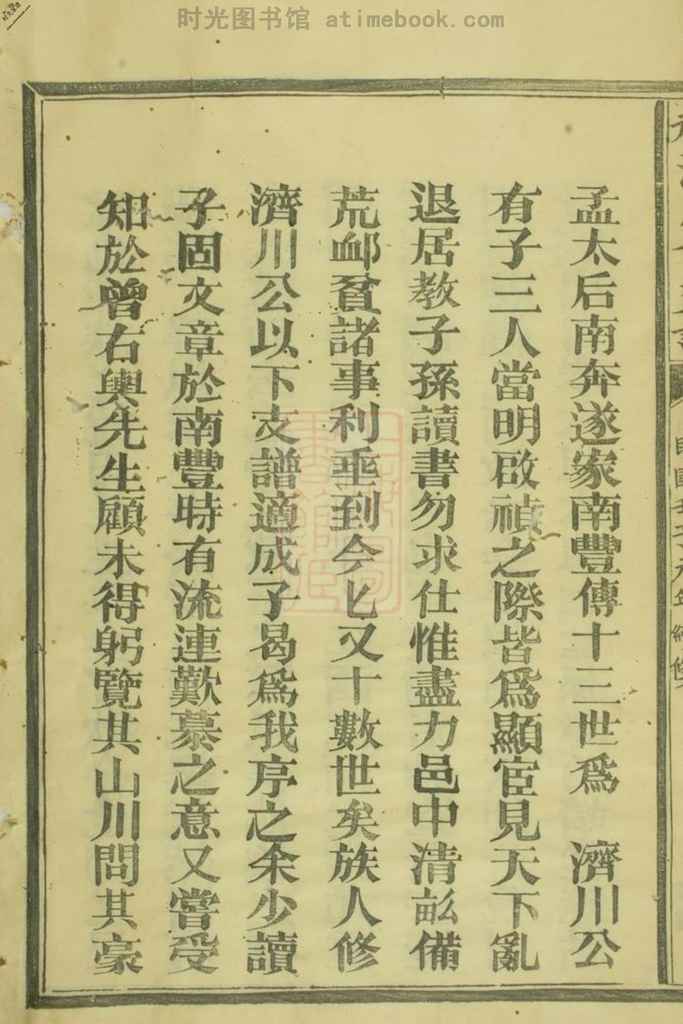 时光图书馆 atimebook.com
孟太后南奔遂家南豐傳十三世爲　濟川公
有子三人當明啟禎之際皆爲顯宦見天下亂
退居教子孫讀書勿求仕惟盡力邑中清訟備
荒卹貧諸事利垂到今匕又十數世矣族人修
濟川公以下支譜適成子曷爲我序之余少讀
子固文章於南豐時有流連歎慕之意又嘗受
知於曾右輿先生顧未得躬覽其山川問其豪
民國